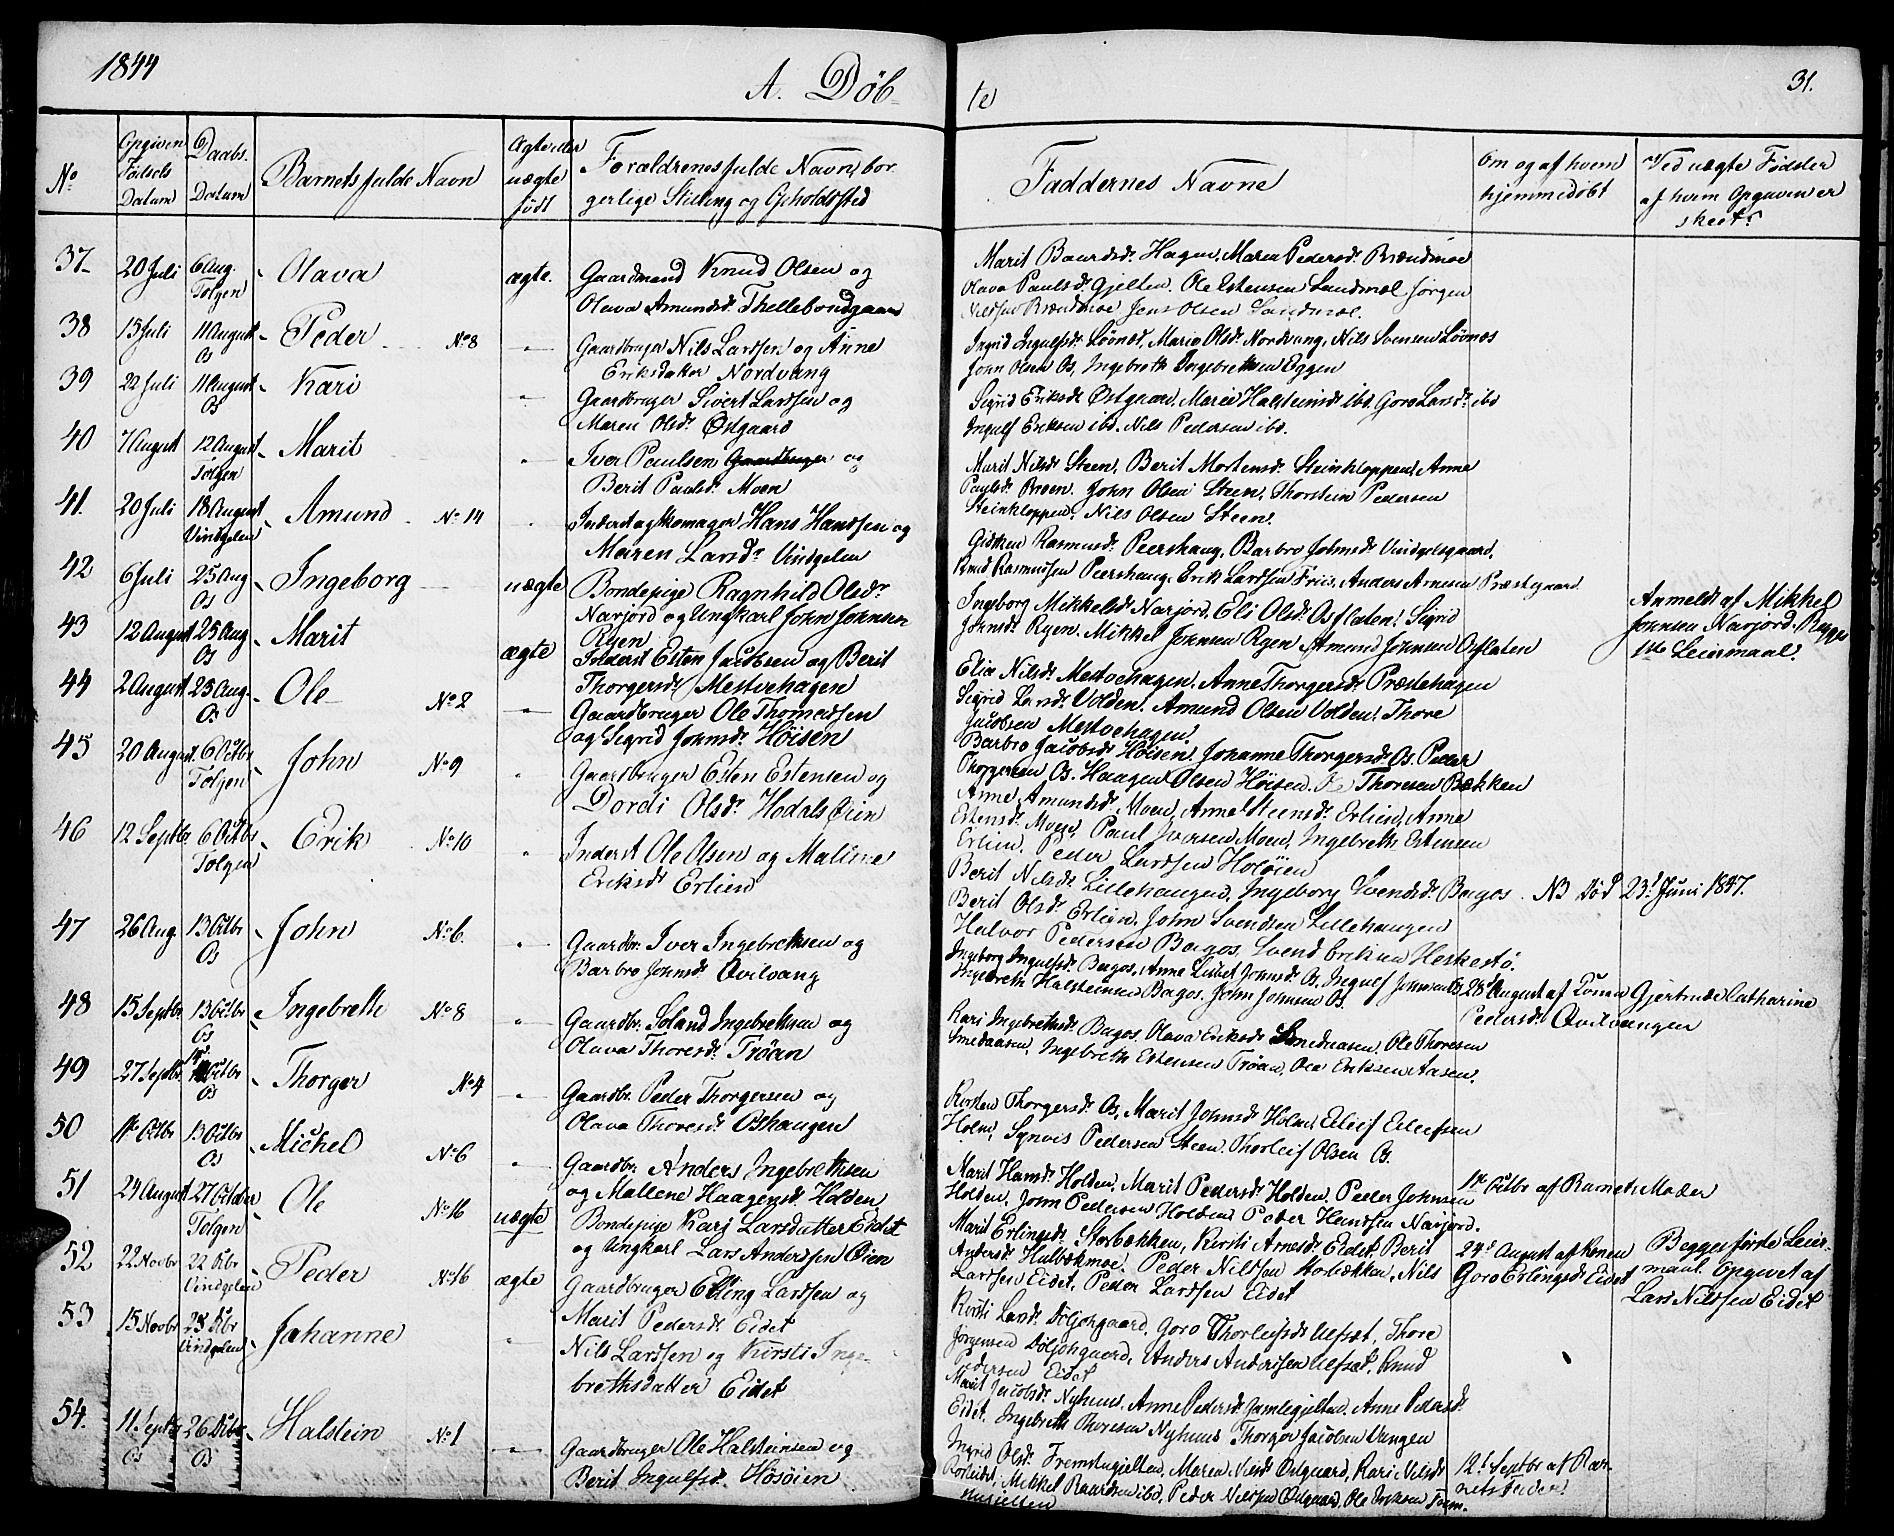 1844
A. Døbte
31.
No
Opgiven Fødsels Datum
Daabs Datum
Barnets fulde Navn
Ægte eller uægte født
Forældrenes fulde Navn, borgerlige Stilling og Opholdssted
Faddernes Navne
Om og af hvem hjemmedøbt
Ved uægte Fødsler af hvem Opgaven er skeet?
37 20 Juli 6 Aug. Tolgen Olava ægte.
Gaardmand Knud Olsen og
Olava Amundsdr. Thellebondgaard
Marit Baardsdr. Hagen, Maren Pedersdr. Brændmoe
Olava Paulsdr. Gjelten, Ole Estensen Sandmæl Jørgen
Nielsen Brændmoe Jens Olsen Sandmæl.
38 13 Juli 11 August Os Peder No 8 —
Gaardbruger Nils Larsen og Anne
Eriksdatter Nordvang
Ingrid Ingulfsdr. Lønæs, Marie Olsdr. Nordvang, Nils Svensen Lønæs
John Olsen Os, Ingebreth Ingebrethsen Eggen
39 22 Juli 11 August Os Kari —
Gaardbruger Sivert Larsen og
Maren Olsdr. Østgaard
Sigrid Eriksdr. Østgaard, Maren Halsteinsdr. ibd. Goro Larsdr. ibd
Ingulf Eriksen ibd. Nils Pedersen ibd.
40 7 August 12 August Tolgen Marit —
Iver Paulsen Gaardbruger og
Berit Paulsdr. Moen
Marit Nilsdr. Steen, Berit Mortensdr. Steinkloppen, Anne
Paulsdr. Broen. John Olsen Steen, Thorstein Pedersen
Steinkloppen, Nils Olsen Steen.
41. 20 Juli 18 August Vindgelen Amund No 14
Inderst og Skomager Hans Hansen og
Maren Larsdr. Vindgelen
Gidsken Rasmusdr. Peershaug, Barbro Johnsdr. Vindgelsgaard,
Knud Rasmussen Peershaug, Erik Larsen Friis, Anders Arnesen Præstgaard.
42 6 Juli 25 Aug Os Ingeborg uægte
Bondepige Ragnhild Olsdr.
Narjord og Ungkarl John Johnsen
Ryen
Ingeborg Mikkelsdr. Narjord, Eli Olsdr. Osflaten, Sigrid
Johnsdr. Ryen, Mikkel Johnsen Ryen Amund Johnsen Osflaten
Anmeldt af Mikkel
Johnsen Narjord. Begges
1ste Leiermaal.
43 12 August 25 Aug Os Marit ægte
Inderst Esten Jacobsen og Berit
Thorgersdr. Mestvehagen
Elia Nilsdr. Mestvehagen, Anne Thorgersdr. Præstehagen
Sigrid Larsdr. Volden, Amund Olsen Volden, Thore
Jacobsen Mestvehagen
44 2 August 25 Aug. Os Ole No 2 —
Gaardbruger Ole Thomassen
og Sigrid Johnsdr. Høisen
Barbro Jacobsdr. Høisen, Johanne Thorgersdr. Os, Peder
Thorgersen Os. Haagen Olsen Høisen, Thoresen Bækken
45 20 August 6 Octbr Tolgen John No 9
Gaardbruger Esten Estensen og
Dordi Olsdr. Hodalsøien
Anne Amundsdr. Moen, Anne Steensdr. Erlien, Anne
Estensdr. Moen, Paul Iversen Moen, Ingebreth Estensen
Erlien, Peder Larsen Holøien
46 12 Septbr 6 Octbr Tolgen Erik No 10
Inderst Ole Olsen og Malene
Eriksdr. Erlien
Berit Nilsdr. Lillehaugen, Ingeborg Svendsdr. Bagos. NB Død 23d Juni 1847.
Berit Olsdr. Erlien, John Svendsen Lillehaugen
Halvor Pedersen Bagos, Svend Eriksen Herkestø.
47 26 Aug 13 Octbr Os John No 6.
Gaardbr. Iver Ingebrethsen og
Barbro Johnsdr. Qvilvang
Ingeborg Ingulfsdr. Bagos, Anne Lisbet Johnsdr. Os, Ingulf Johnsen Os
Ingebreth Halsteinsen Bagos. John Johnsen Os
28 August af Konen Gjertrude Catharine
Pedersdr. Qvilvangen
48 15 Septbr 13 Octbr Os Ingebreth No 8
Gaardbr. Esland Ingebrethsen og
Olava Thoresdr. Trøan
Kari Ingebrethsdr. Bagos, Olava Eriksdr. Smedaasen, Ole Thoresen
Smedaasen, Ingebreth Estensen Trøan, Ole Eriksen Aasen.
49 27 Septbr Octbr Os Thorger No 4 —
Gaardbr. Peder Thorgersen og
Olava Thoresdr. Oshaugen
Kirsten Thorgersdr. Os, Marit Johnsdr. Holm, Eileif Eileifsen
Holm, Synvis Pedersen Steen, Thorleif Olsen Os.
50 1te Octbr 13 Octbr Os Mickel No 6
Gaardbr. Anders Ingebrethsen
og Mallene Haagensdr. Holden
Marit Hansdr. Holden, Marit Pedersdr. Holden, Peder Johnsen
Holden, John Pedersen Holden, Peder Hansen Narjord.
1te Octbr af Barnets Moder
51 24 August 27 October Tolgen Ole No 16 uægte
Bondepige Kari Larsdatter Eidet
og Ungkarl Lars Andersen Øien
Marit Erlingsdr. Storbækken, Kirsti Arnesdr. Eidet, Berit
Andersdr. Hulbækmoe. Peder Nilsen Storbækken, Nils
Larsen Eidet, Peder Larsen Eidet
24d August af Konen
Goro Erlingsdr. Eidet
Begges første Leier-
maal. Opgivet af
Lars Nilsen Eidet
52 22 Novbr 22 Dbr Vindgelen Peder No 16 ægte
Gaardbruger Elling Larsen og
Marit Pedersdr. Eidet
Kirsti Larsdr. Døljehgaard, Goro Thorleifsdr. Ulfsæt, Thore
Jørgensen Døljehgaard, Anders Andersen Ulfsæt, Knud
Pedersen Eidet
53 15 Novbr 23 Dbr Vindgelen Johanne
Nils Larsen og Kirsti Inge-
brethsdatter Eidet
Marit Jacobsdr. Nyhuus, Anne Pedersdr. Gamlegjelten, Anne Pedersdr.
Eidet, Ingebreth Thoresen Nyhuus Thorger Jacobsen Vangen
54. 11 Septbr Os 26 Dbr Os Halstein No 1 —
Gaardbruger Ole Halsteinsen og
Berit Ingulfsdr. Høsøien
Ingrid Olsdr. Fremstugjelten, Maren Nilsdr. Østgaard, Kari Nilsdr.
Mikkel Baardsen ibd, Peder Nilsen Østgaard, Ole Eriksen Frem-
stugjelten
12d Septbr af Bar-
nets Fader